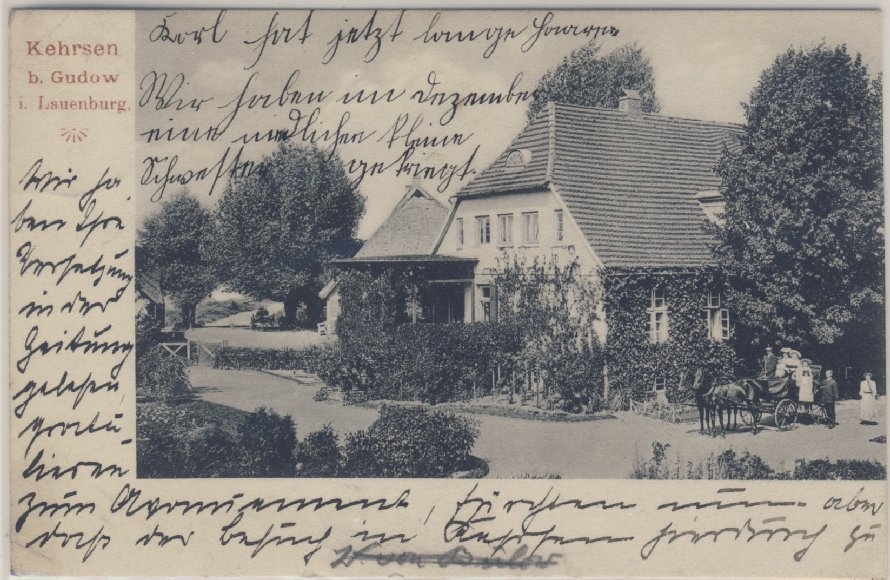 Kehrsen
b. Gudow
i. Lauenburg.
Karl hat jetzt lange Haare
Wir haben im Dezember
eine niedliche kleine
Schwester gekriegt.
Wir ha
ben Ihre
Versetzung
in der
Zeitung
gelesen,
gratu-
lieren
zum Avancement, fürchten nun aber
dass der Besuch in Kehrsen hierdurch zu
von Bülow